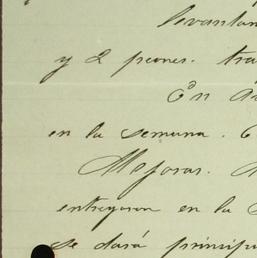 levantan
y 2 peones. tra
En
en la semana.
Mejoras.
entregaron en la
se dará princip